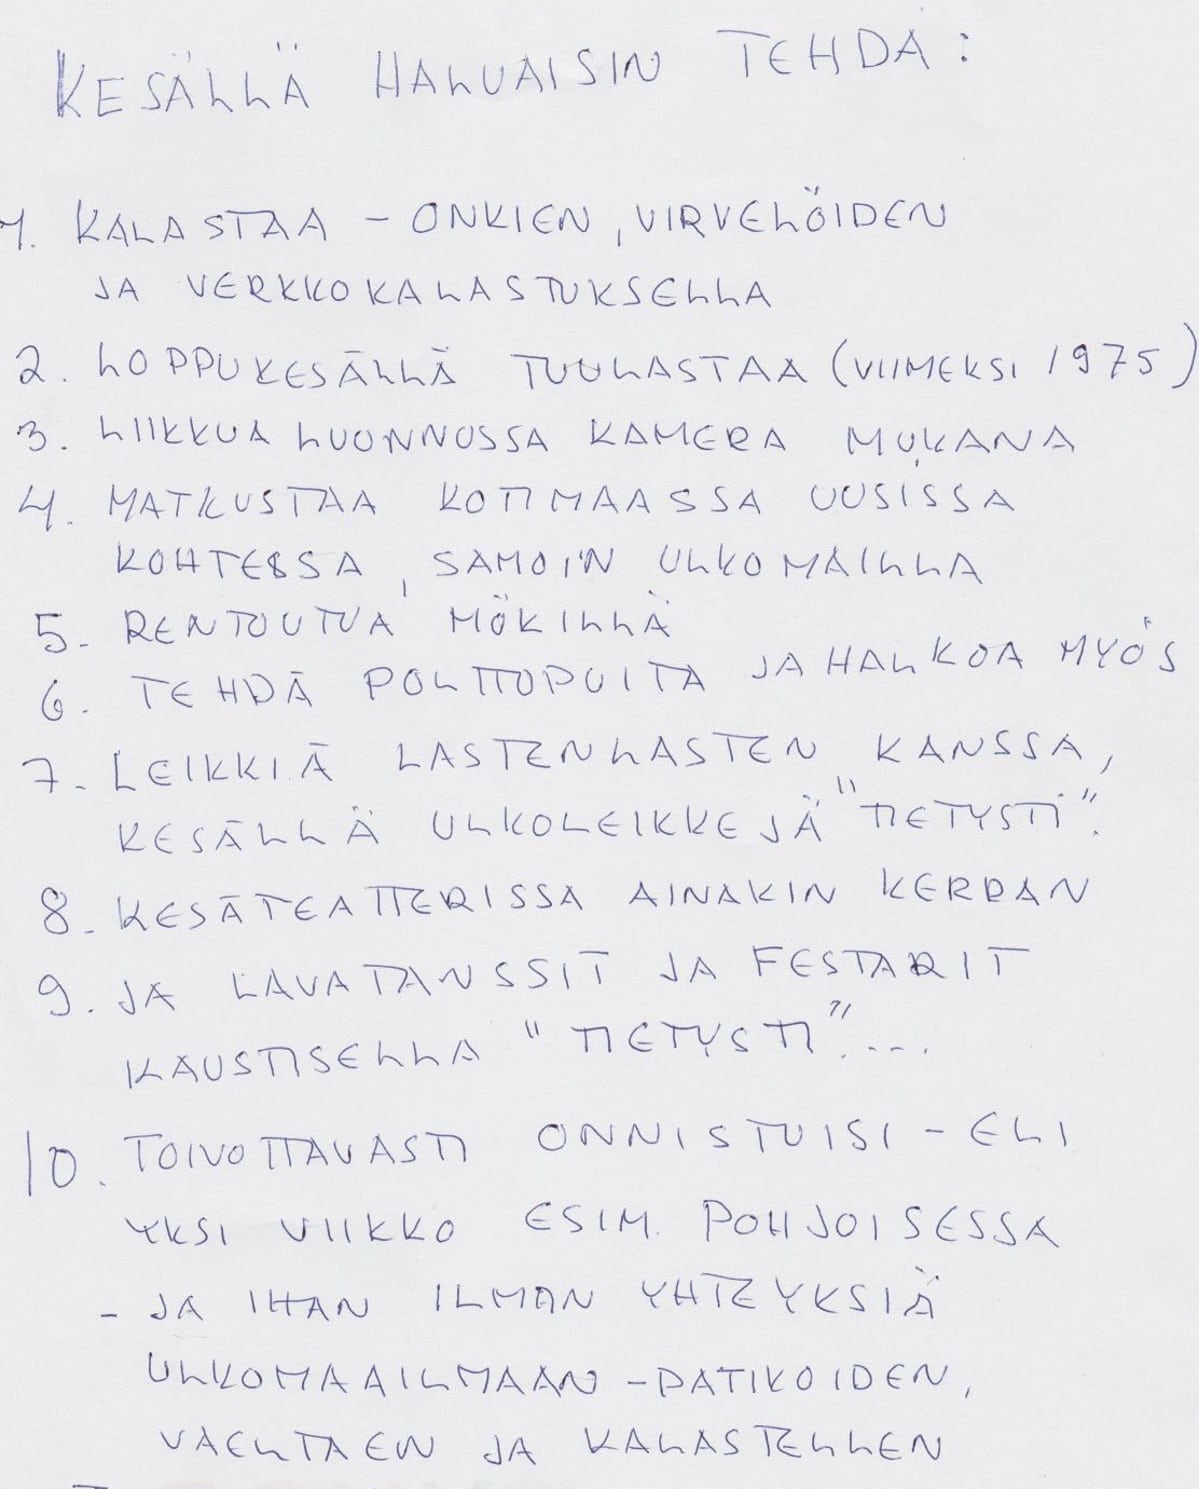 KESÄLLÄ HALUAISIN TEHDÄ:
1. KALASTAA - ONKIEN, VIRVELÖIDEN
JA VERKKOKALASTUKSELLA
2. LOPPUKESÄLLÄ TUULASTAA (VIIMEKSI 1975)
3. LIIKKUA LUONNOSSA KAMERA MUKANA
4. MATKUSTAA KOTIMAASSA UUSISSA
KOHTESSA, SAMOIN ULKOMAILLA
5. RENTOUTUA MÖKILLÄ
6. TEHDÄ POLTTOPUITA JA HALKOA MYÖS
7. LEIKKIÄ LASTENLASTEN KANSSA,
KESÄLLÄ ULKOLEIKKEJÄ "TIETYSTI".
8. KESÄTEATTERISSA AINAKIN KERRAN
9. JA LAVATANSSIT JA FESTARIT
KAUSTISELLA "TIETYSTI"....
10. TOIVOTTAVASTI ONNISTUISI - ELI
YKSI VIIKKO ESIM. POHJOISESSA
- JA IHAN ILMAN YHTEYKSIÄ
ULKOMAAILMAAN - PATIKOIDEN,
VAELTAEN JA KALASTELLEN